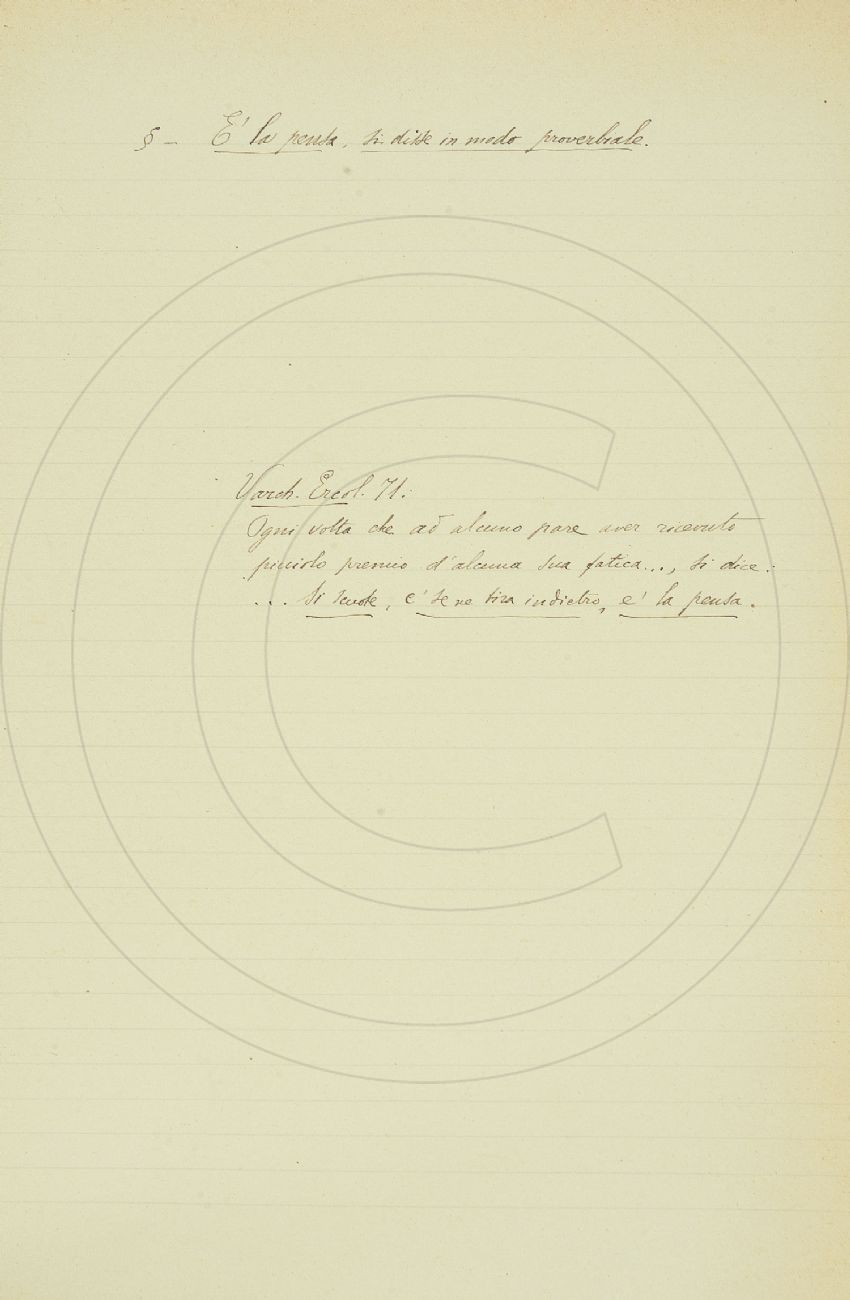 § - E' la pensa, si disse in modo proverbiale.
Varch. Ercol. 71:
Ogni volta che ad alcuno pare aver ricevuto
picciolo premio d'alcuna sua fatica..., si dice:
... si scuote, e' se ne tira indietro, e' la pensa.